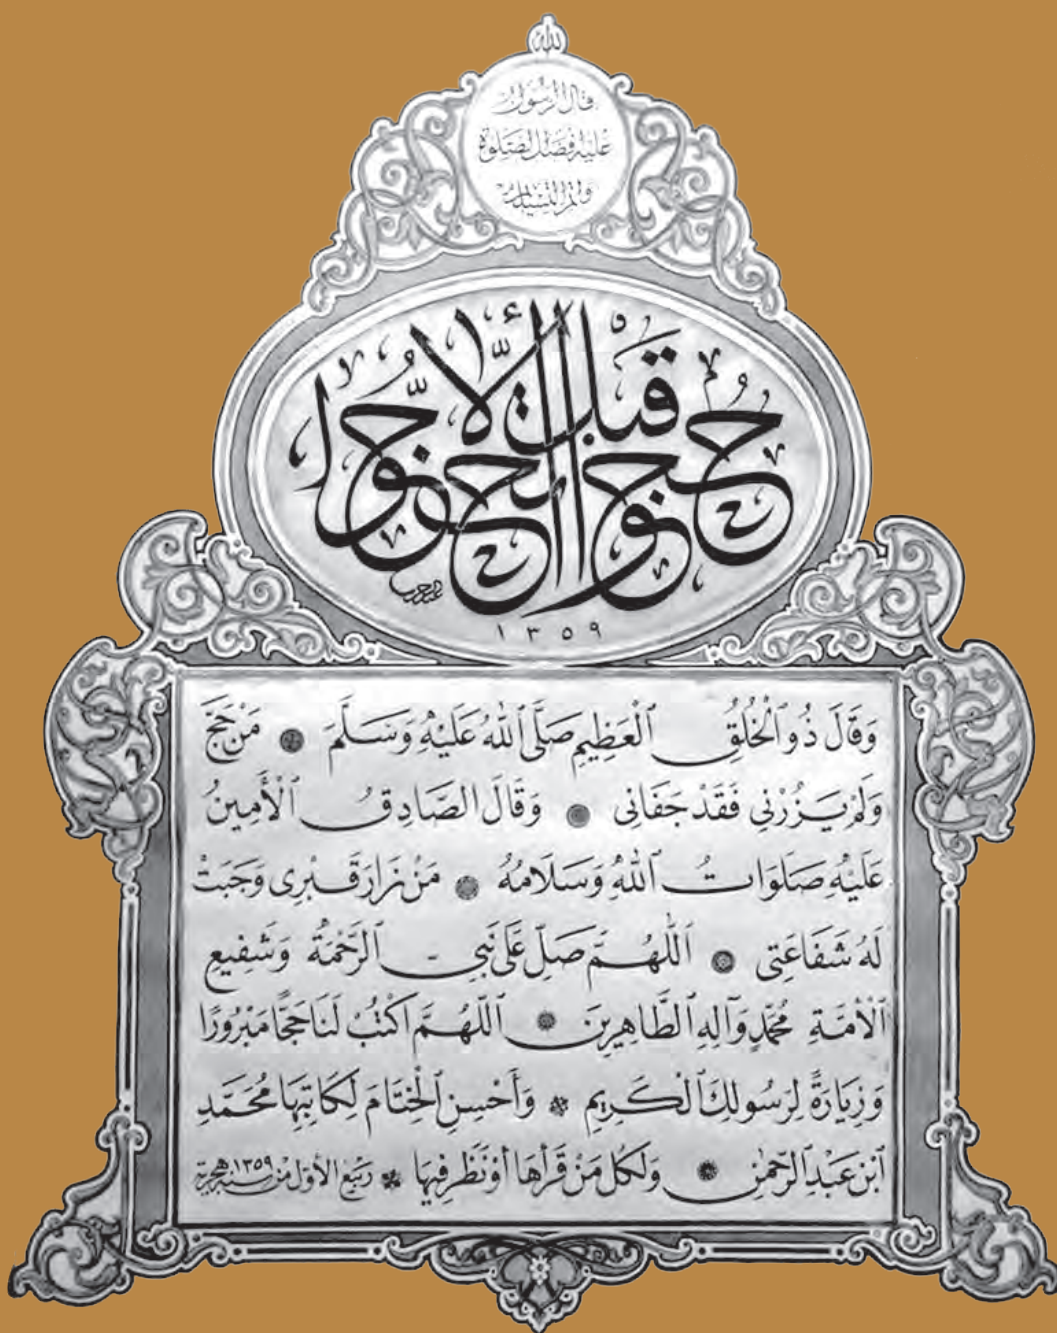 الله
قال الرسول
عليه افضل الصلوة
واتم التسليم
حجوا قبل ألّا تحجّوا
١٣٥٩
وَقَالَ ذُو ٱلْخُلُقِ ٱلْعَظِيمِ صَلَّى ٱللهُ عَلَيْهِ وَسَلَّمَ ۞ مَنْ حَجَّ
وَلَمْ يَزُرْنِي فَقَدْ جَفَانِي ۞ وَقَالَ الصَّادِقُ ٱلْأَمِينُ
عَلَيْهِ صَلَوَاتُ ٱللهِ وَسَلَامُهُ ۞ مَنْ زَارَ قَبْرِى وَجَبَتْ
لَهُ شَفَاعَتِى ۞ اَللّٰهُمَّ صَلِّ عَلَى نَبِيِّ ٱلرَّحْمَةِ وَشَفِيعِ
ٱلْأُمَّةِ مُحَمَّدٍ وَآلِهِ ٱلطَّاهِرِينَ ۞ اَللّٰهُمَّ اكْتُبْ لَنَا حَجًّا مَبْرُورًا
وَزِيَارَةً لِرَسُولِكَ ٱلْكَرِيمِ ۞ وَأَحْسِنِ ٱلْخِتَامَ لِكَاتِبِهَا مُحَمَّدِ
ٱبْنِ عَبْدِ ٱلرَّحْمٰنِ ۞ وَلِكُلِّ مَنْ قَرَأَهَا أَوْ نَظَرَ فِيهَا ۞ رَبِيع الأوّل مِنْ سنة ١٣٥٩ هجرية